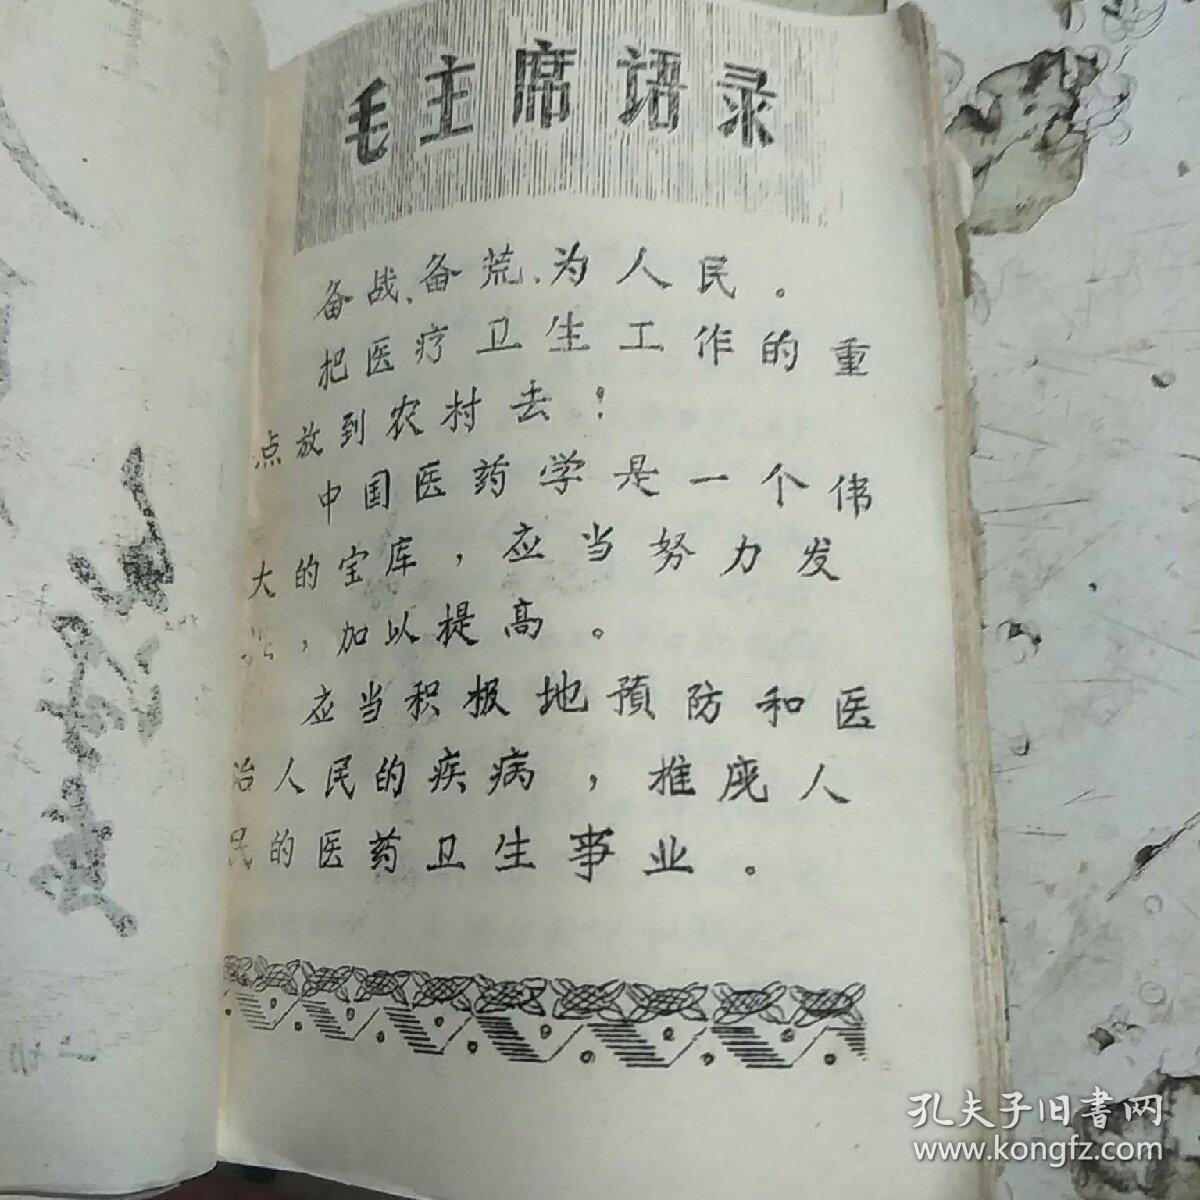 毛主席语录
备战、备荒、为人民。
把医疗卫生工作的重
点放到农村去！
中国医药学是一个伟
大的宝库，应当努力发
，加以提高。
应当积极地預防和医
治人民的疾病，推庑人
民的医药卫生事业。
孔夫子旧書网
www.kongfz.com